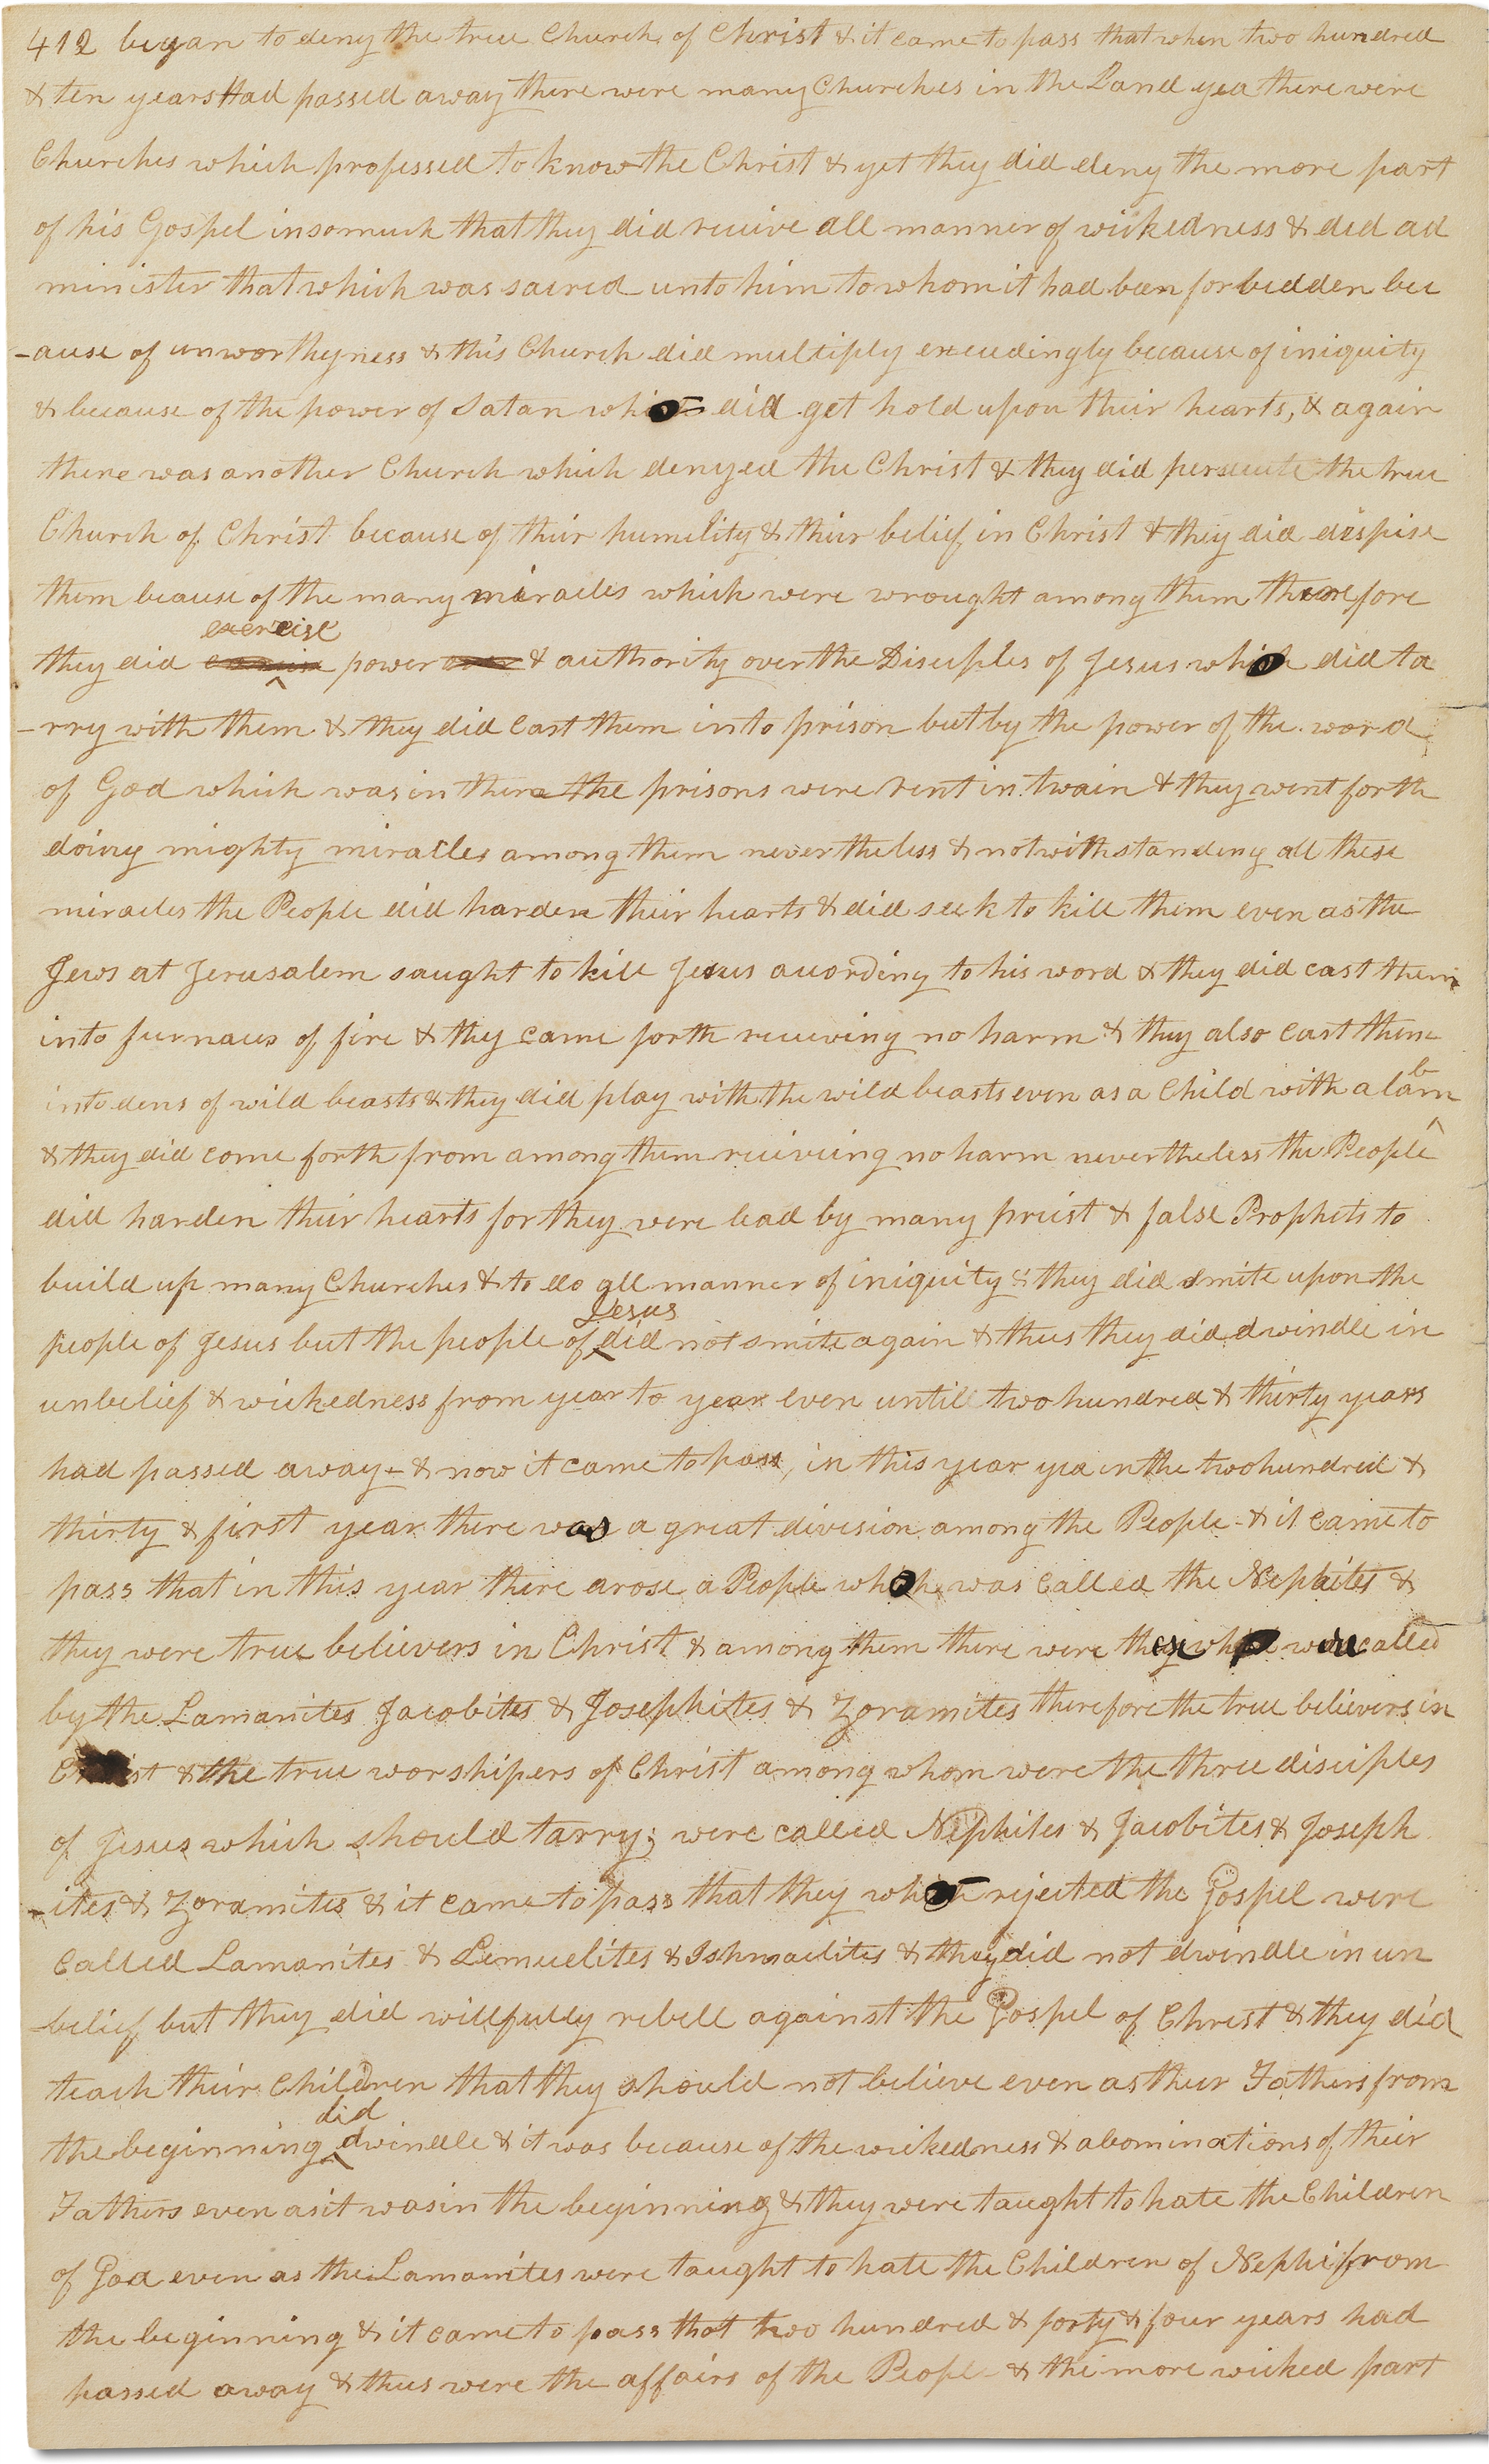 412 began to deny the true Church of Christ & it came to pass that when two hundred
& ten years Had passed away there were many Churches in the Land yea there were
Churches which professed to know the Christ & yet they did deny the more part
of his Gospel insomuch that they did recieve all manner of wickedness & did ad
minister that which was sacred unto him to whom it had been forbidden bec
-ause of unworthyness & this Church did multiply exceedingly because of iniquity
& because of the power of Satan who did get hold upon their hearts, & again
there was another Church which denyed the Christ & they did persecute the true
Church of Christ because of their humility & their belief in Christ & they did despise
them because of the many miracles which were wrought among them therefore
exercise
they did power & authority over the Disciples of Jesus who did ta
-rry with them & they did cast them into prison but by the power of the word
of God which was in them the prisons were rent in twain & they went forth
doing mighty miracles among them nevertheless & notwithstanding all these
miracles the People did harden their hearts & did seek to kill them even as the
Jews at Jerusalem saught to kill Jesus according to his word & they did cast them
into furnaces of fire & they came forth recieving no harm & they also cast them
into dens of wild beasts & they did play with the wild beasts even as a Child with a lamb
& they did come forth from among them recieving no harm nevertheless the People
did harden their hearts for they were lead by many priest & false Prophets to
build up many Churches & to do all manner of iniquity & they did smite upon the
Jesus
people of Jesus but the people of did not smite again & thus they did dwindle in
unbelief & wickedness from year to year even untill two hundred & thirty years
had passed away- & now it came to pass, in this year yea in the two hundred &
thirty & first year there was a great division among the People- & it came to
pass that in this year there arose a People who was called the Nephites &
they were true believers in Christ & among them there were those who were called
by the Lamanites Jacobites & Josephites & Zoramites therefore the true believers in
Christ & the true worshipers of Christ among whom were the three disciples
of Jesus which should tarry; were called Nephites & Jacobites & Joseph
-ites & Zoramites & it came to pass that they who rejected the Gospel were
Called Lamanites & Lemuelites & Ishmaelites & they did not dwindle in un
-belief but they did willfully rebell against the Gospel of Christ & they did
teach their Children that they should not believe even as their Fathers from
did
the beginning dwindle & it was because of the wickedness & abominations of their
Fathers even as it was in the beginning & they were taught to hate the Children
of God even as the Lamanites were taught to hate the Children of Nephi from
the beginning & it came to pass that two hundred & forty & four years had
passed away & thus were the affairs of the People & the more wicked part